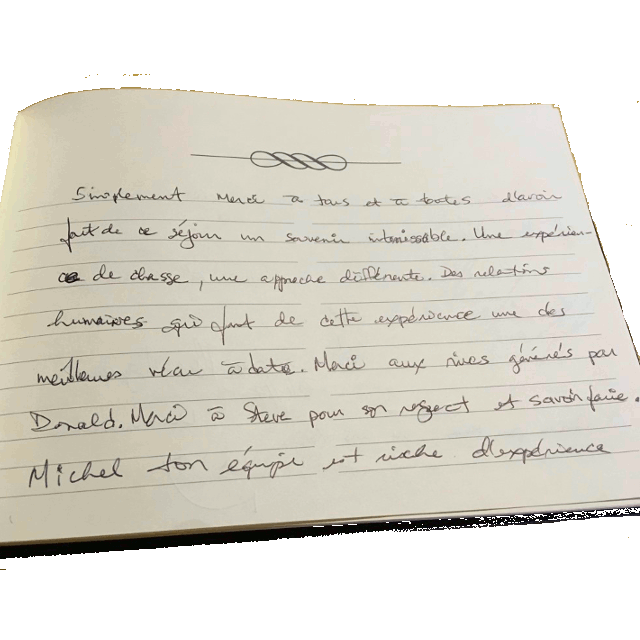 Simplement Merci à tous et à toutes d'avoir
fait de ce séjour un souvenir intarissable. Une expérien-
ce de chasse, une approche différente. Des relations
humaires qui font de cette expérience une des
meilleures vécu à date. Merci aux rires générés par
Donald. Merci à Steve pour son respect et savoir faire.
Michel ton équipe est riche d'expérience